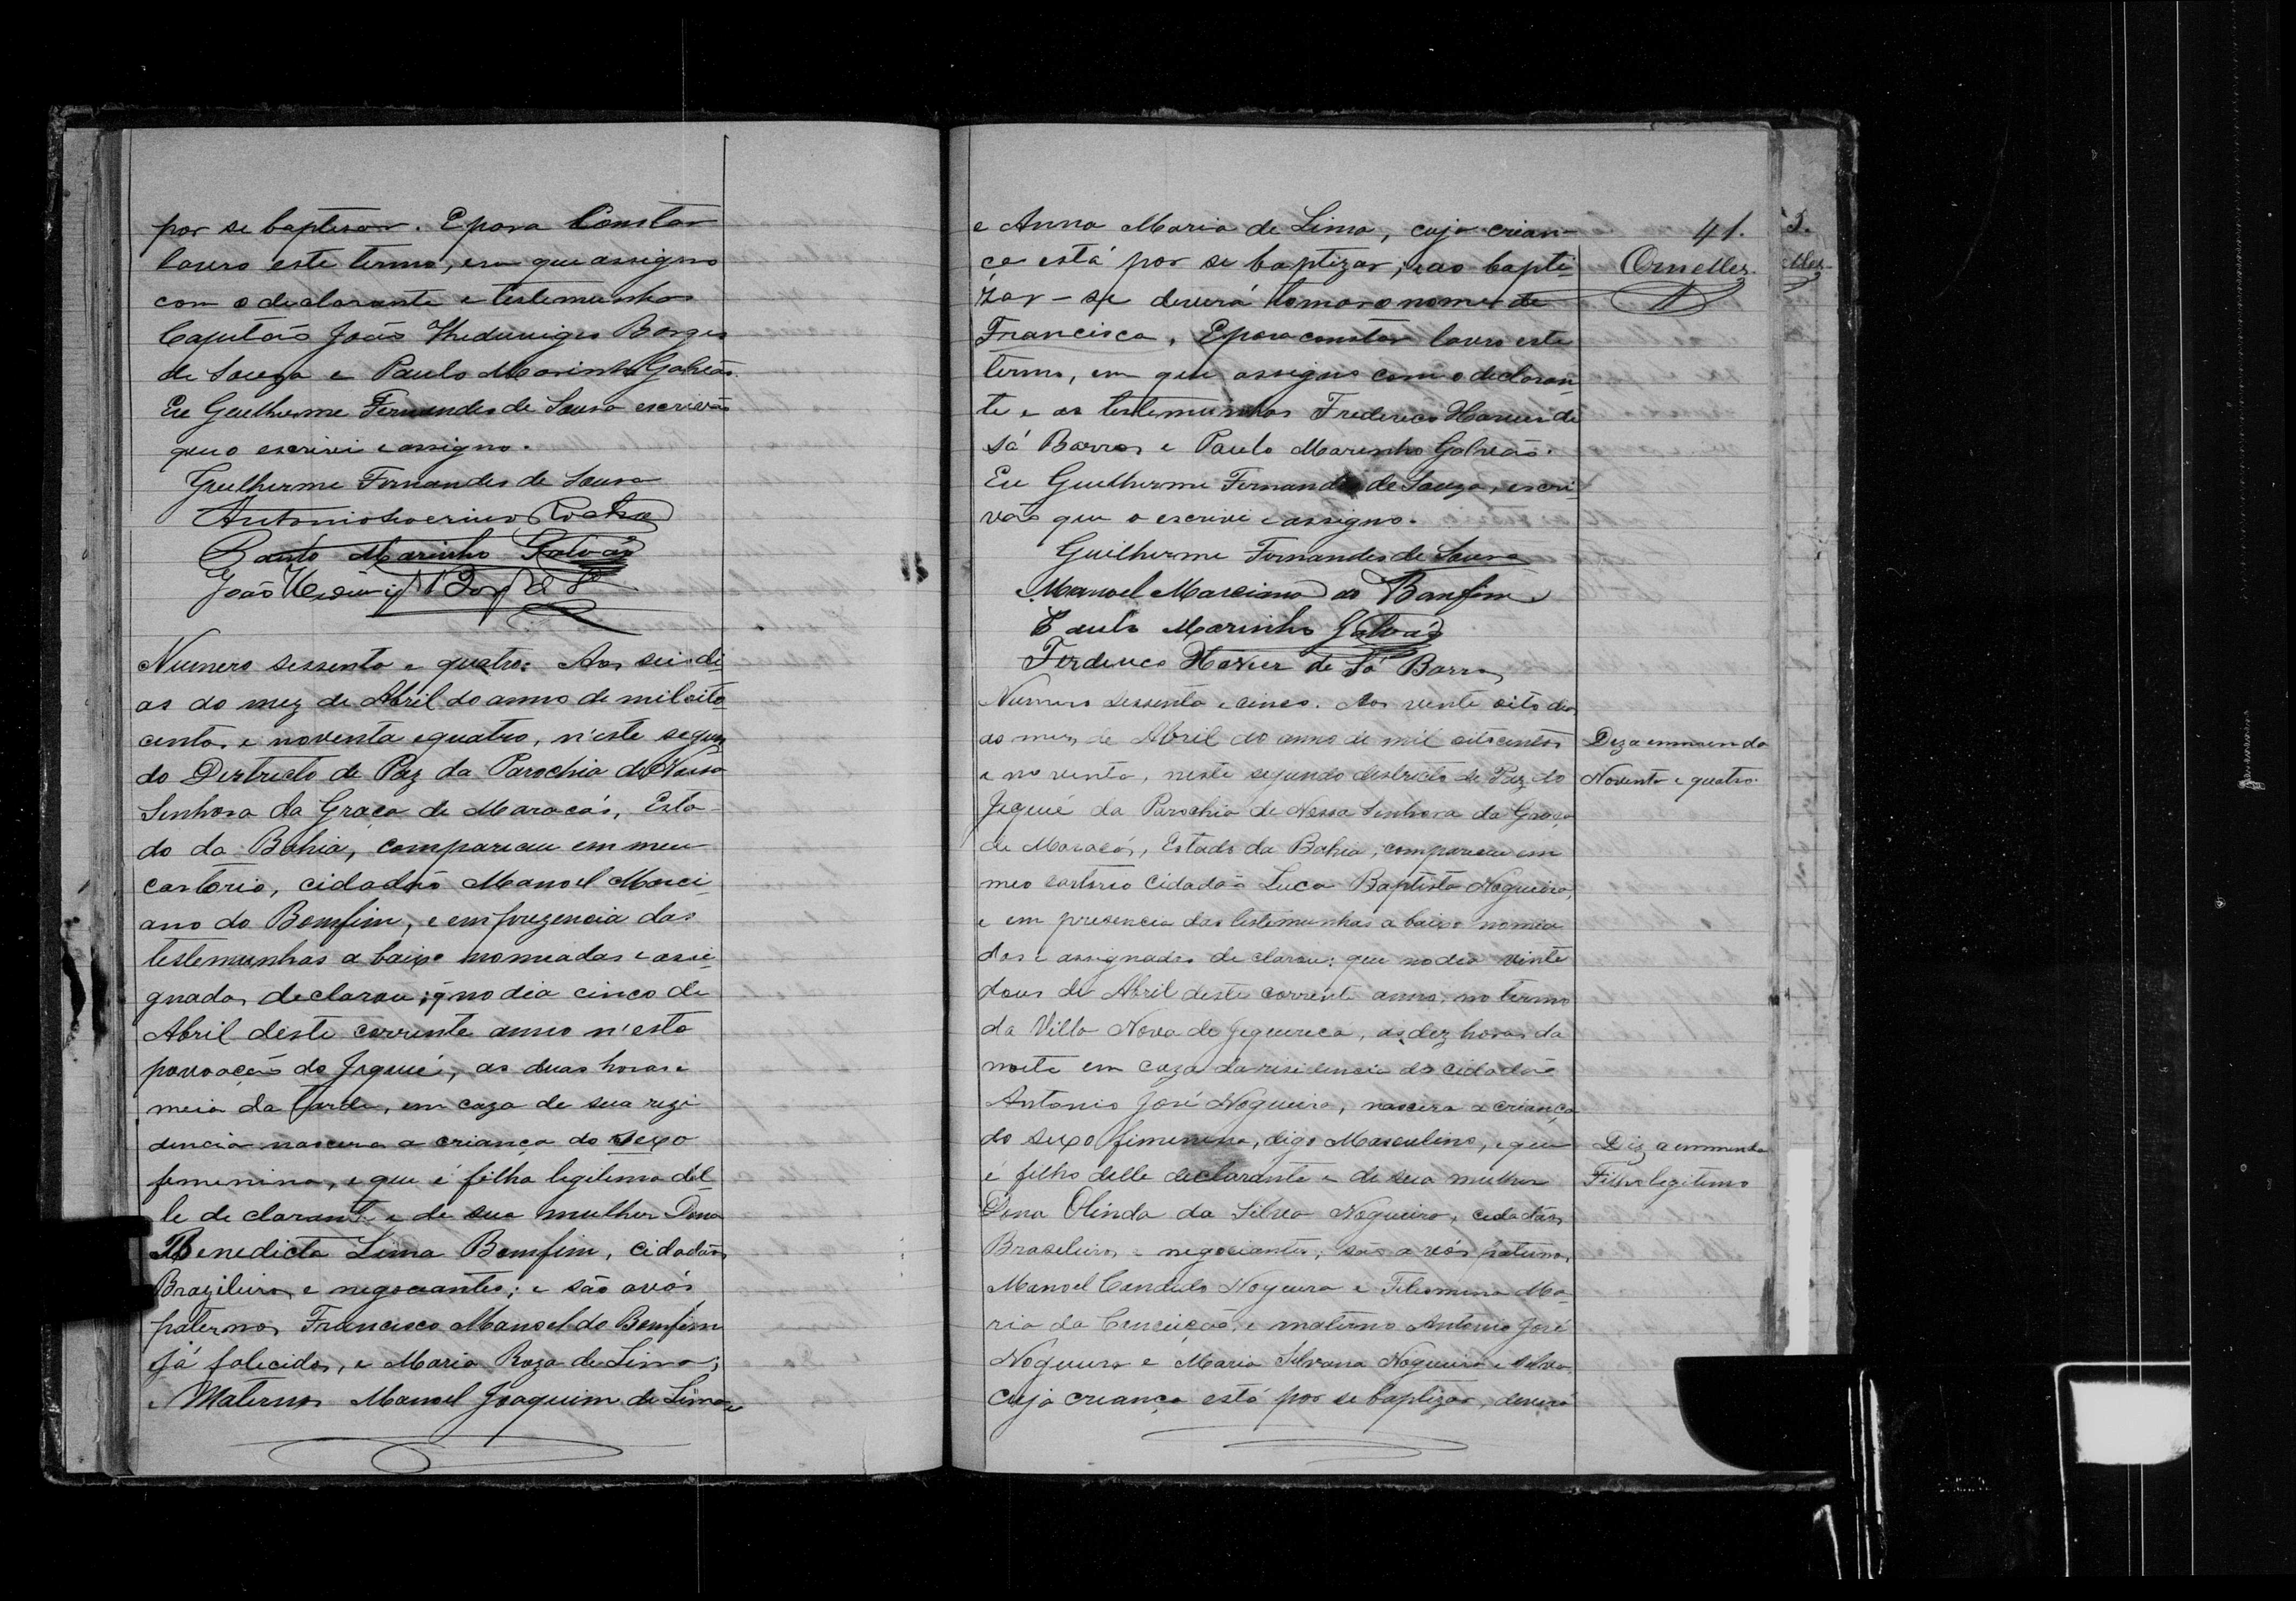 por se baptisar. E para Constar
lavro este termo, em que assigno
com o declarante e testemunhas
Capitão João Heduviges Borges
de Souza e Paulo Marinho Galvão.
Eu Guilherme Fernandes de Sousa escrivão
que o escrivi e assigno.
Guilherme Fernandes de Sousa
Antonio Rocha
Paulo Marinho Galvão
João
Numero sessenta e quatro: Aos seis di
as do mez de Abril do anno de mil oito
centos e noventa e quatro, n'este segun
do Destricto de Paz da Parochia de Nossa
Senhora da Graça de Maracás, Esta
do da Bahia, compareceu em meu
cartorio, cidadão Manoel Marci
ano do Bomfim, e em prezencia das
testemunhas a baixo nomeadas e assi
gnadas declarou; q no dia cinco de
Abril deste corrente anno n'esta
povoação do Jequié, as duas horas e
meia da tarde, em caza de sua rezi
dencia nascera a criança do sexo
femenino, e que é filha legitema del
le declarante e de sua mulher Dona
Benedicta Lima Bomfim, cidadãos
Brazileiros e negociantes; e são avós
paternos Francisco Manoel do Bomfim
já falecidos, e Maria Roza de Lima;
e Maternos Manoel Joaquim de Lima
e Anna Maria de Lima, cuja crian
ça está por se baptizar, e ao bapti
zar-se deverá tomar o nome de
Francisca. E para constar lavro este
termo, em que assigno com o declaran
te e as testemunhas Frederico Xavier de
Sá Barros e Paulo Marinho Galvão.
Eu Guilherme Fernandes de Souza, escri
vão que o escrivi e assigno.
Guilherme Fernandes de Sousa
Manoel Marciano do Bomfim
Paulo Marinho Galvão
Ferderico Xavier de Sá Barros
Numero sessenta e cinco. Aos vente oito dias
do mez de Abril do anno de mil oitocentos
e noventa, neste segundo destricto de Paz do
Jequié da Parochia de Nossa Senhora da Graça
de Maracás, Estado da Bahia, compareceu em
meo cartorio cidadão Luca Baptista Nogueira,
e em presencia das testemunhas a baixo nomea
das e assignadas declarou: que no dia vinte
dous de Abril deste corrente anno, no termo
da Villa Nova de Jequiriçá, as dez horas da
noite em caza da risidencia do cidadão
Antonio José Nogueira, nascera a criança
do sexo femenino, digo Masculino, e que
é filho delle declarante e de sua mulher
Dona Olinda da Silva Nogueira, cidadãos
Brasileiros e negociantes; são avós paternos,
Manoel Candido Nogueira e Filomena Ma
ria da Conceição, e maternos Antonio José
Nogueira e Maria Silvana Nogueira e Silva,
cuja criança está por se baptizar, deverá
41.
Ornellez
Diz a emmenda
Noventa e quatro.
Diz a emmenda
Filho legitimo